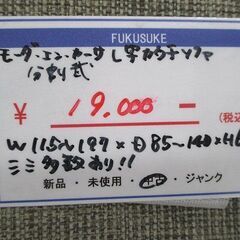 FUKUSUKE
モーダ・エン・カーサ L字カウチソファ
分割式
¥ 19,000 - (税込
W115~197×D85~140×H6
ミミ多数あり!!
新品・未使用・中古・ジャンク